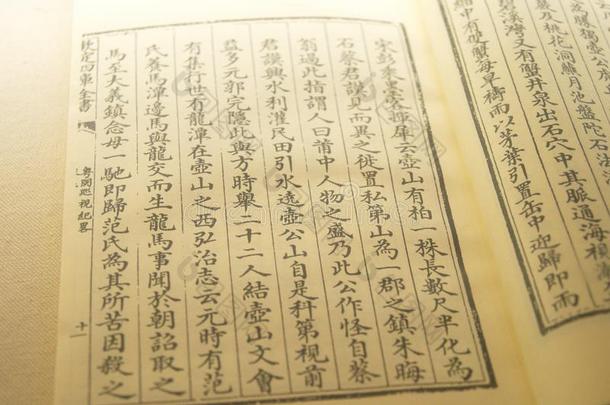 桃花洞 月池盤陀石
碧溪灣又有蟹井泉出石穴中其脈通海
蟹每旱禱雨以芳葉引置缶中迎歸即雨
宋彭 犀云壺山有柏一株長數尺半化為
石蔡君謨見而異之徙置私第山為一郡之鎮朱晦
翁過此指謂人曰莆中人物之盛乃此公作怪自蔡
君謨興水利灌民田引水遶壺公山自是科第視前
益多元郭完隱此與方時舉二十二人結壺山文會
有集行世有龍渾在壺山之西弘治志云元時有范
氏養馬渾邊馬與龍交而生龍馬事聞於朝詔取之
馬至大義鎮念母一馳即歸范氏為其所苦因殺之
欽定四庫全書
粵閩巡視紀畧
十一